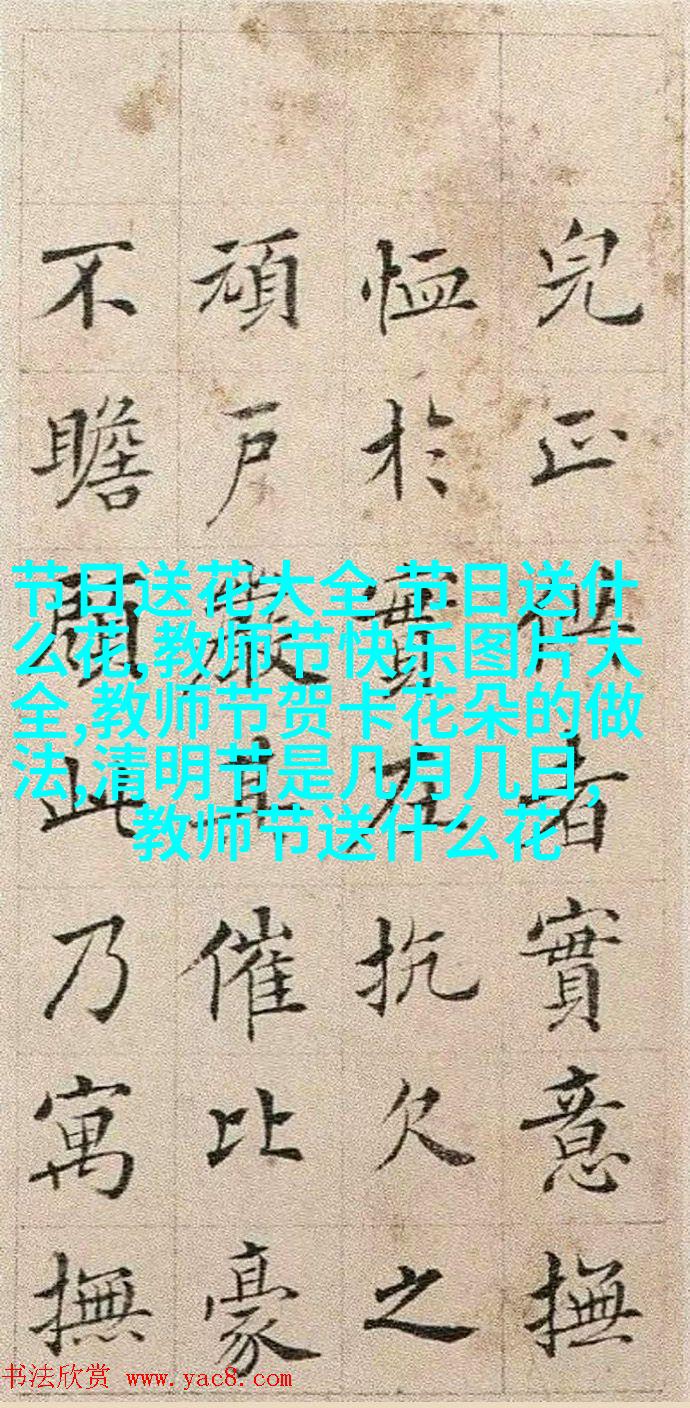 完正供者實意撫
恤於實在抗欠之
頑戶嚴其催比豪
不瞻此乃寓撫
节日送花大全,节日送什
么花,教师节快乐图片大
全,教师节贺卡花朵的做
法,清明节是几月几日,
教师节送什么花
书法欣赏 www.yac8.com